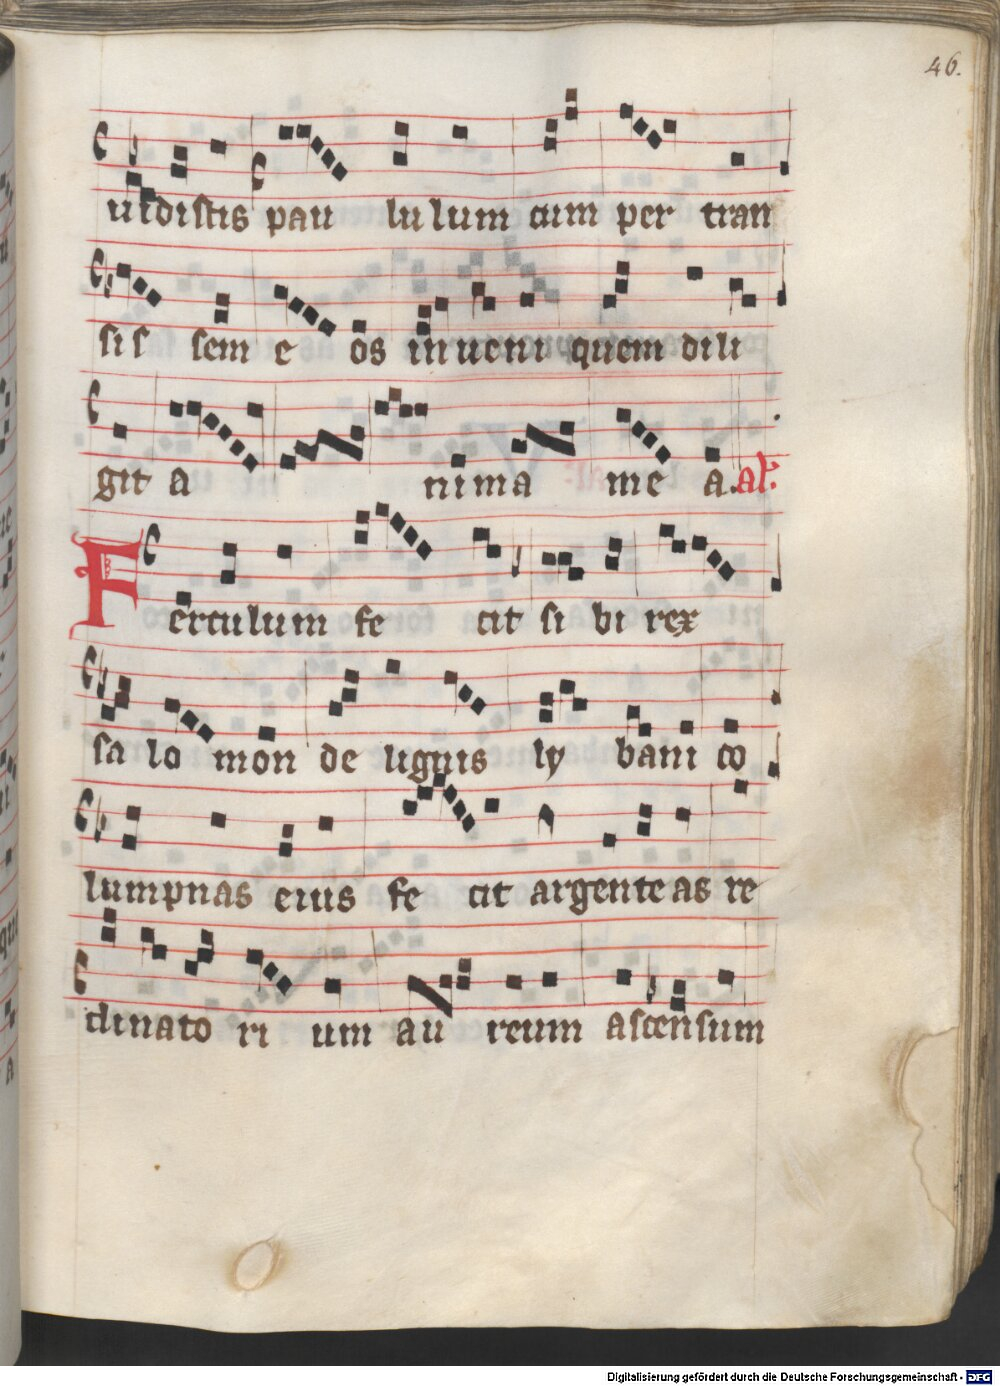 46.
uidistis pau lu lum cum per tran
sis sem e os inueni quem dili
git a nima me a. al'.
Ferculum fe cit si bi rex
sa lo mon de lignis ly bani co
lumpnas eius fe cit argenteas re
clinato ri um au reum ascensum
Digitalisierung gefördert durch die Deutsche Forschungsgemeinschaft - DFG